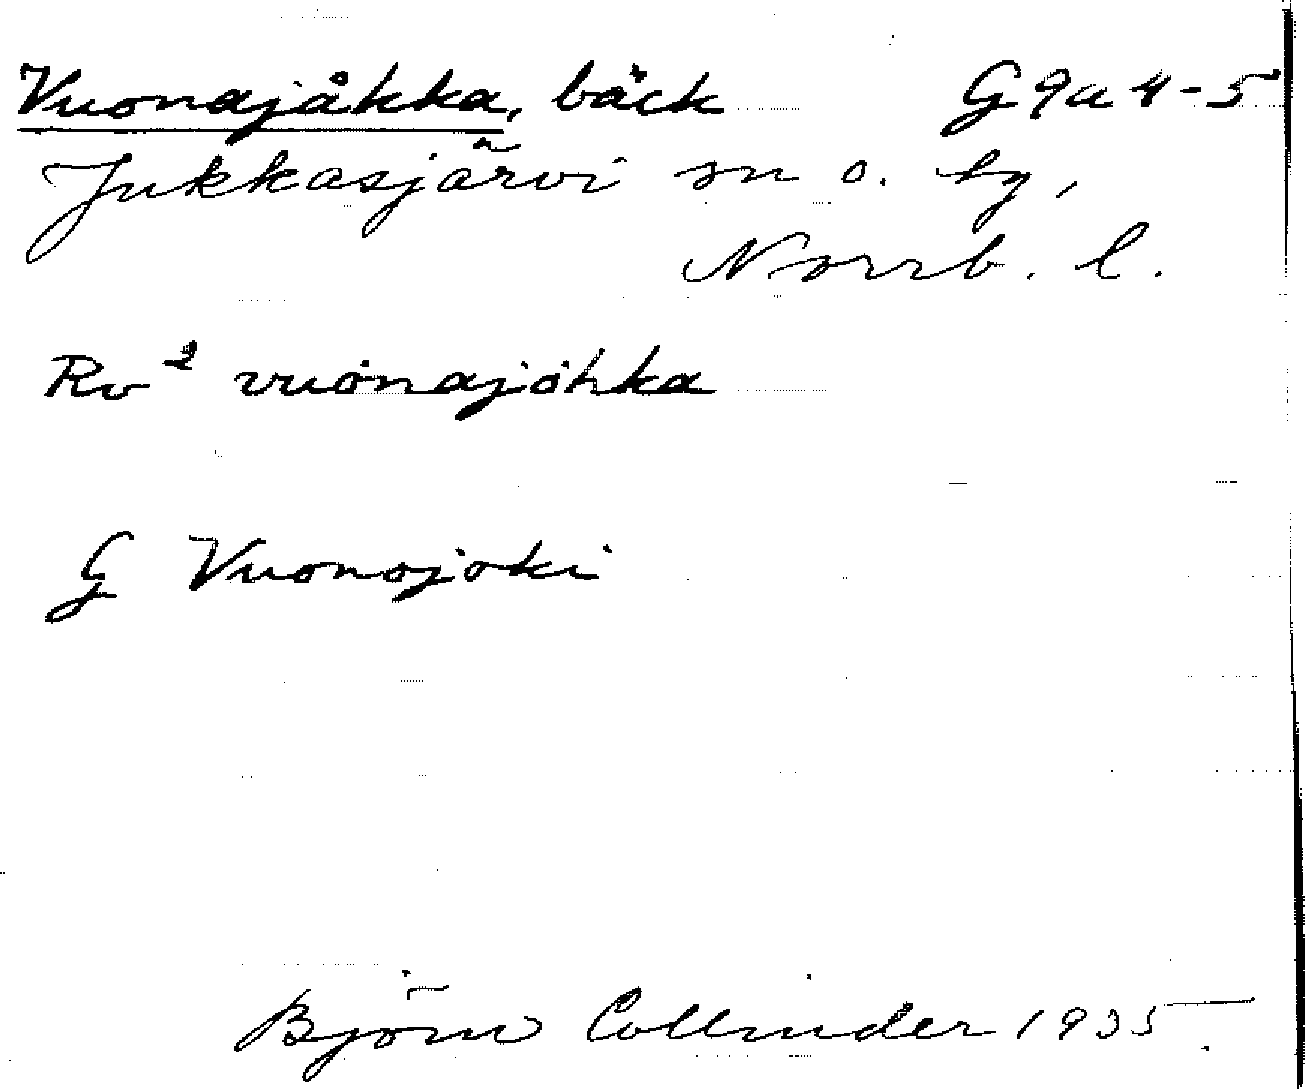 Vuonajåkka, bäck G 9a 4-5
Jukkasjärvi sn o. tg,
Norrb. l.
Rv² vuonajohka
G Vuonojoki
Björn Collinder 1935